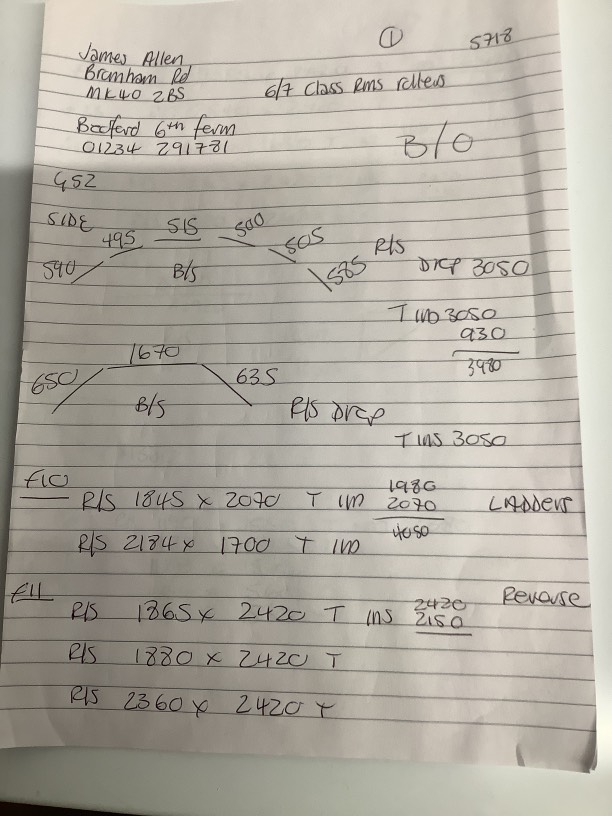 ① 5718
James Allen
Bromham Rd
MK40 2BS 6/7 Class Rms rollers
Bedford 6th form
01234 291781 B/O
G52
SIDE 495 515 500 505 R/S
540 B/S 585 Drop 3050
T 3050
930
3980
1670
650 635
B/S R/S Drop
T INS 3050
F10 1980
R/S 1845 x 2070 T 2070 LADDERS
4050
R/S 2184 x 1700 T
F11 2420 Reverse
R/S 1865 x 2420 T INS 2150
R/S 1880 x 2420 T
R/S 2360 x 2420 T